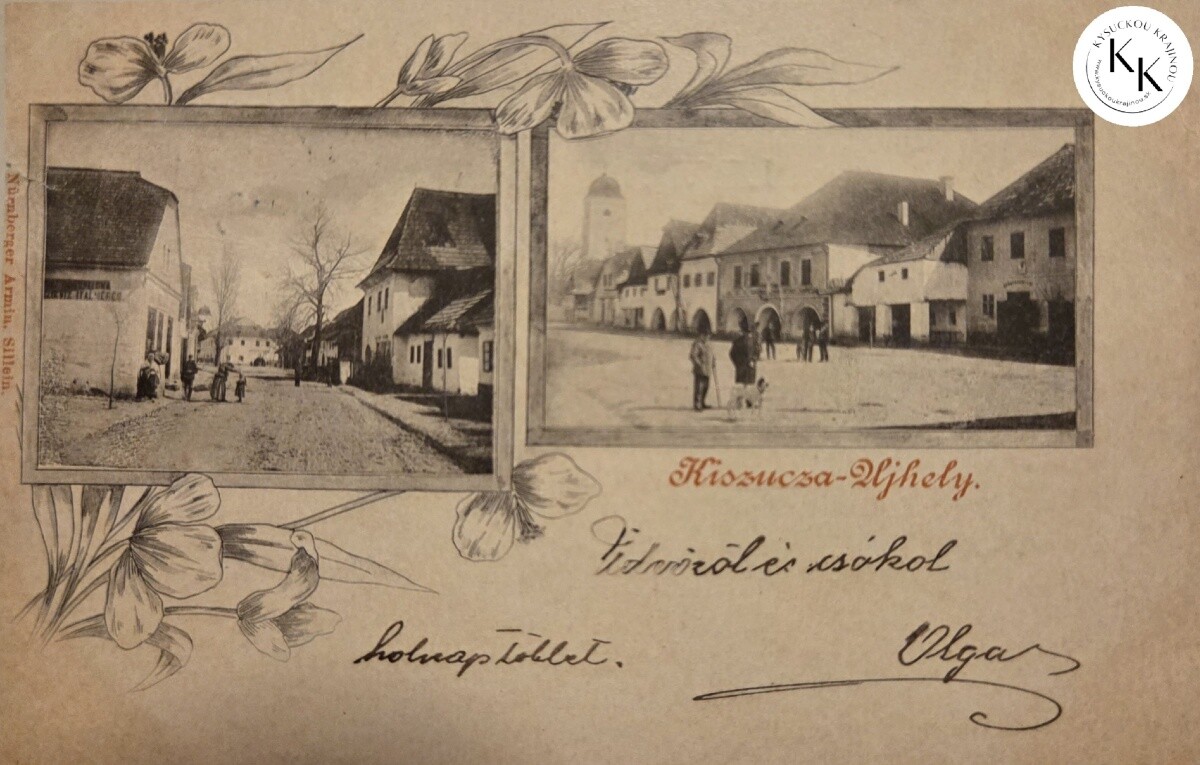 KYSUCKOU KRAJINOU
K K
www.kysuckoukrajinou.sk
Nürnberger Armin, Sillein.
Kiszucza-Ujhely.
Üdvözöl és csókol
holnap többet.
Olga